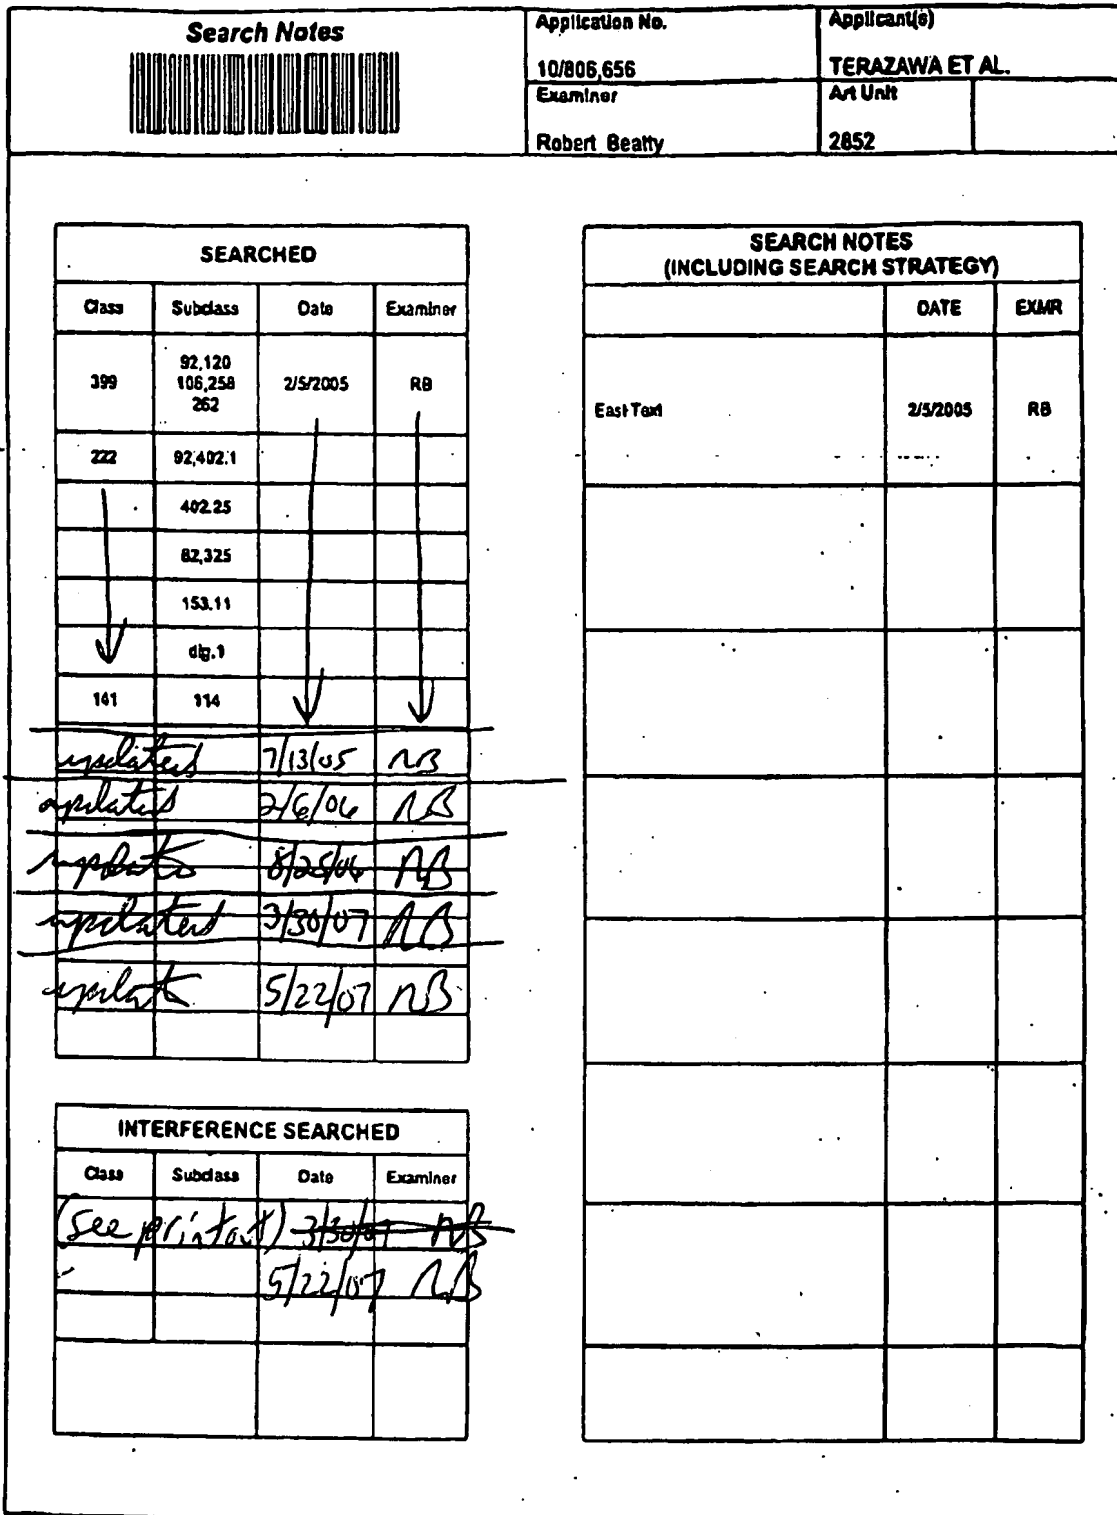 Search Notes
Application No.
10/806,656
Applicant(s)
TERAZAWA ET AL.
Examiner
Robert Beatty
Art Unit
2852
SEARCHED
Class Subclass Date Examiner
399 92,120 2/5/2005 RB
106,258
262
222 92,402.1
402.25
82,325
153.11
dig.1
141 114
updated 7/13/05 RB
updated 2/6/06 RB
update 8/25/06 RB
updated 3/30/07 RB
update 5/22/07 RB
INTERFERENCE SEARCHED
Class Subclass Date Examiner
(see printout) 3/30/07 RB
5/22/07 RB
SEARCH NOTES
(INCLUDING SEARCH STRATEGY)
DATE EXMR
East Text 2/5/2005 RB